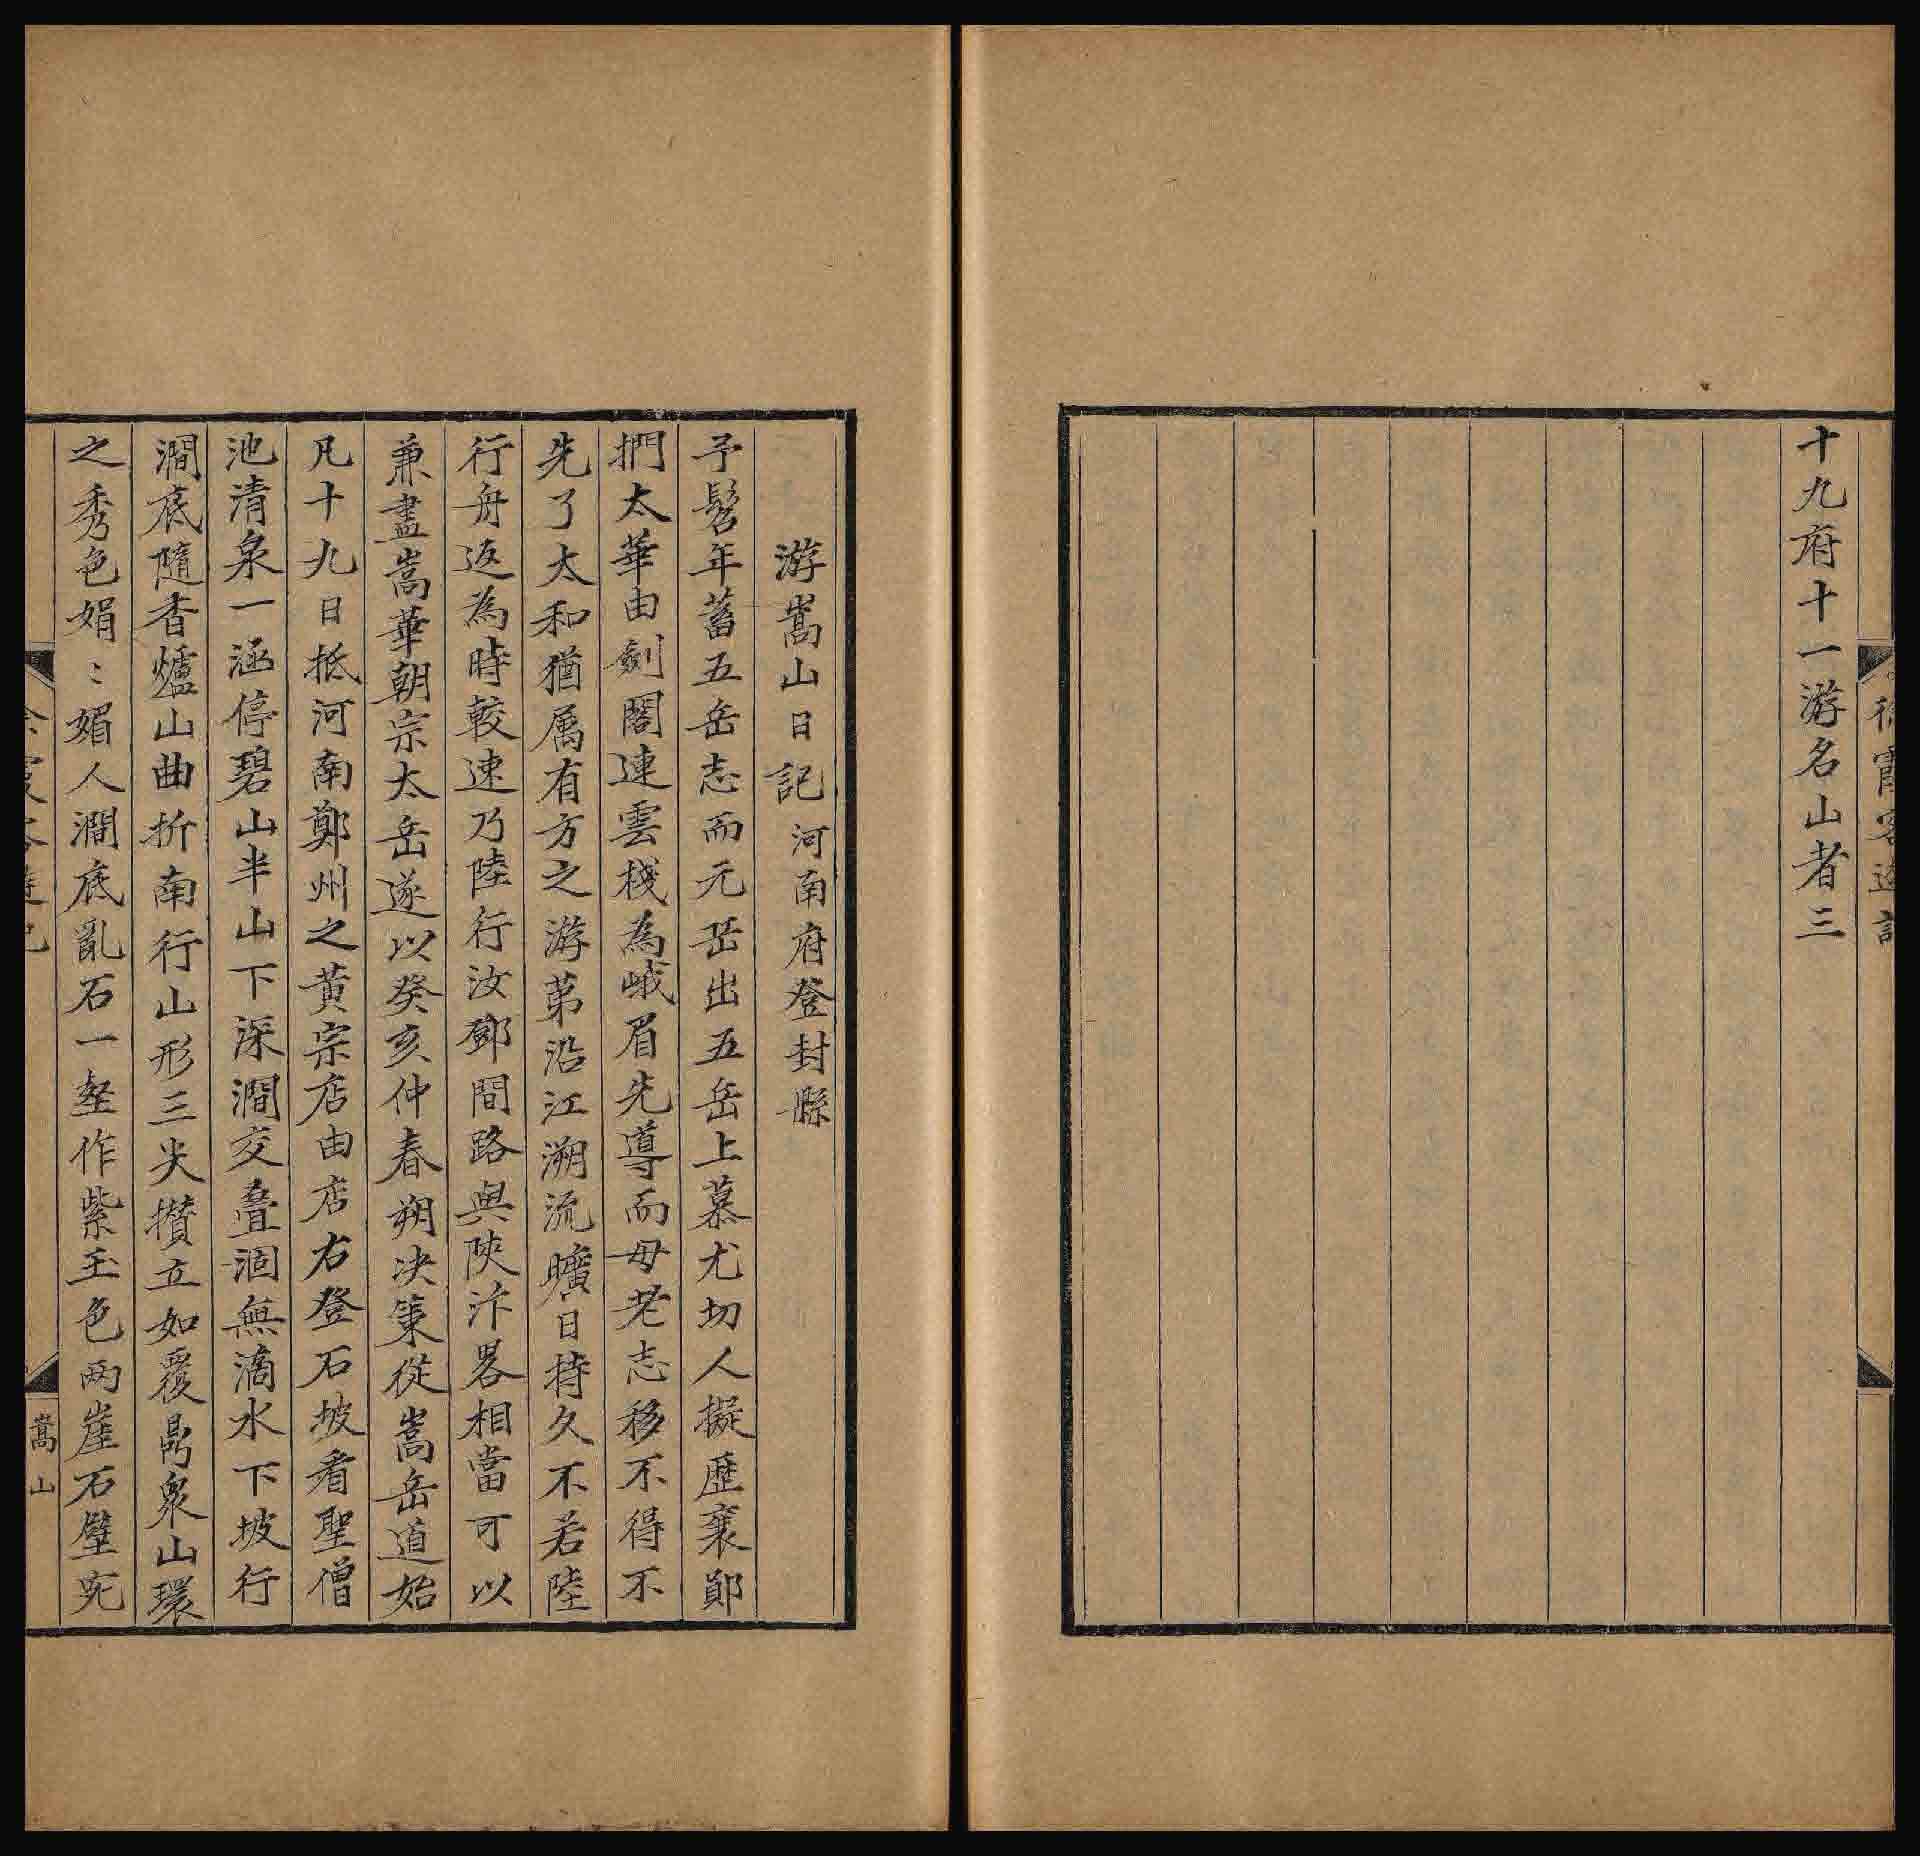 徐霞客遊記
十九府十一游名山者三
游嵩山日記河南府登封縣
予髫年蓄五岳志而元岳出五岳上慕尤切人擬歷襄鄖
捫太華由劍閣連雲棧為峨眉先導而母老志移不得不
先了太和猶属有方之游第沿江溯流曠日持久不若陸
行舟返為時較速乃陸行汝鄧間路與陝汴畧相當可以
兼盡嵩華朝宗太岳遂以癸亥仲春朔决策從嵩岳道始
凡十九日抵河南鄭州之黄宗店由店右登石坡看聖僧
池清泉一涵停碧山半山下深澗交疊涸無滴水下坡行
澗底隨香爐山曲折南行山形三尖攅立如覆鼎泉山環
之秀色娟〻媚人澗底亂石一壑作紫玉色兩崖石壁宛
嵩山